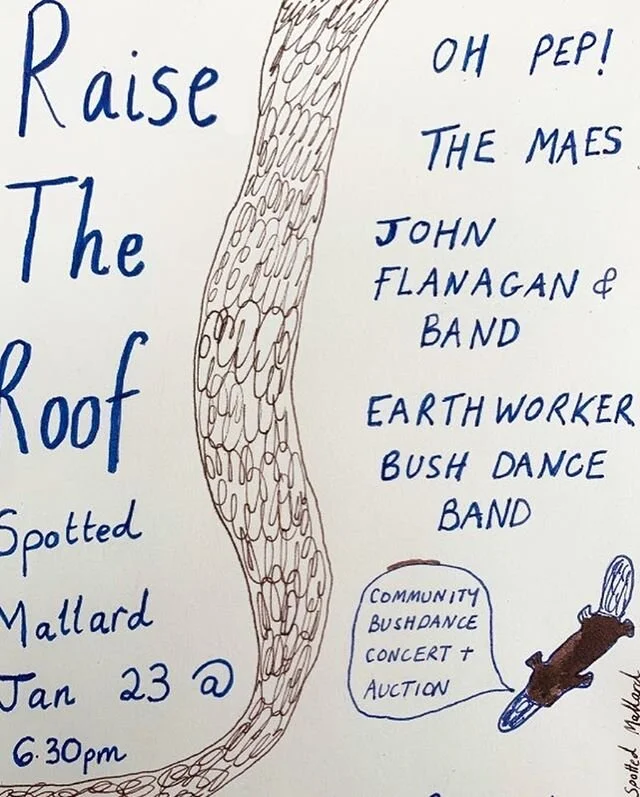 Raise
The
Roof
Spotted
Mallard
Jan 23 @
6.30pm
OH PEP!
THE MAES
JOHN
FLANAGAN &
BAND
EARTHWORKER
BUSH DANCE
BAND
COMMUNITY
BUSHDANCE
CONCERT +
AUCTION
Spotted Mallard